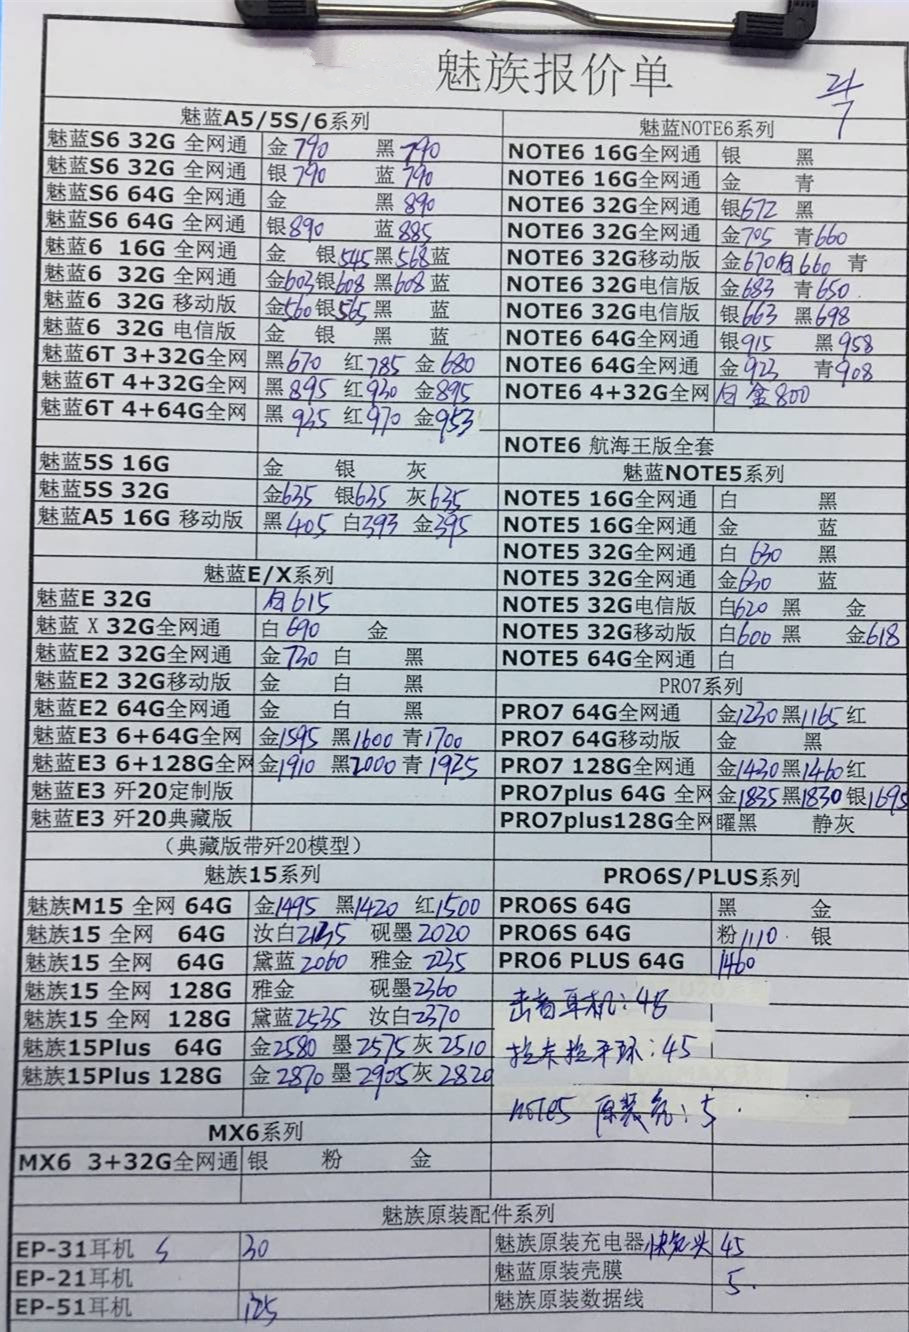 魅族报价单
21/7
魅蓝A5/5S/6系列
魅蓝S6 32G 全网通 金790 黑790
魅蓝S6 32G 全网通 银790 蓝790
魅蓝S6 64G 全网通 金 黑890
魅蓝S6 64G 全网通 银890 蓝885
魅蓝6 16G 全网通 金 银545 黑568 蓝
魅蓝6 32G 全网通 金603 银608 黑608 蓝
魅蓝6 32G 移动版 金560 银565 黑 蓝
魅蓝6 32G 电信版 金 银 黑 蓝
魅蓝6T 3+32G全网 黑670 红785 金680
魅蓝6T 4+32G全网 黑895 红930 金895
魅蓝6T 4+64G全网 黑935 红970 金953
魅蓝5S 16G 金 银 灰
魅蓝5S 32G 金635 银635 灰635
魅蓝A5 16G 移动版 黑405 白393 金395
魅蓝E/X系列
魅蓝E 32G 白615
魅蓝 X 32G全网通 白690 金
魅蓝E2 32G全网通 金730 白 黑
魅蓝E2 32G移动版 金 白 黑
魅蓝E2 64G全网通 金 白 黑
魅蓝E3 6+64G全网 金1595 黑1600 青1700
魅蓝E3 6+128G全网 金1910 黑2000 青1925
魅蓝E3 歼20定制版
魅蓝E3 歼20典藏版
（典藏版带歼20模型）
魅族15系列
魅族M15 全网 64G 金1495 黑1420 红1500
魅族15 全网 64G 汝白 砚墨2020
魅族15 全网 64G 黛蓝2060 雅金2235
魅族15 全网 128G 雅金 砚墨2360
魅族15 全网 128G 黛蓝2535 汝白2370
魅族15Plus 64G 金2580 墨2575 灰2510
魅族15Plus 128G 金2870 墨2905 灰2820
MX6系列
MX6 3+32G全网通 银 粉 金
魅蓝NOTE6系列
NOTE6 16G全网通 银 黑
NOTE6 16G全网通 金 青
NOTE6 32G全网通 银672 黑
NOTE6 32G全网通 金705 青660
NOTE6 32G移动版 金670 白660 青
NOTE6 32G电信版 金683 青650
NOTE6 32G电信版 银663 黑698
NOTE6 64G全网通 银915 黑958
NOTE6 64G全网通 金923 青908
NOTE6 4+32G全网 白 金800
NOTE6 航海王版全套
魅蓝NOTE5系列
NOTE5 16G全网通 白 黑
NOTE5 16G全网通 金 蓝
NOTE5 32G全网通 白 630 黑
NOTE5 32G全网通 金630 蓝
NOTE5 32G电信版 白620 黑 金
NOTE5 32G移动版 白600 黑 金618
NOTE5 64G全网通 白
PRO7系列
PRO7 64G全网通 金1230 黑1165 红
PRO7 64G移动版 金 黑
PRO7 128G全网通 金1430 黑1460 红
PRO7plus 64G 全网 金1835 黑1830 银1695
PRO7plus128G全网 曜黑 静灰
PRO6S/PLUS系列
PRO6S 64G 黑 金
PRO6S 64G 粉1110 银
PRO6 PLUS 64G 1460
击音耳机：48
拉卡拉手环：45
NOTE5 原装壳：5
魅族原装配件系列
EP-31耳机 30
EP-21耳机
EP-51耳机 125
魅族原装充电器 快充头 45
魅蓝原装壳膜 5
魅族原装数据线